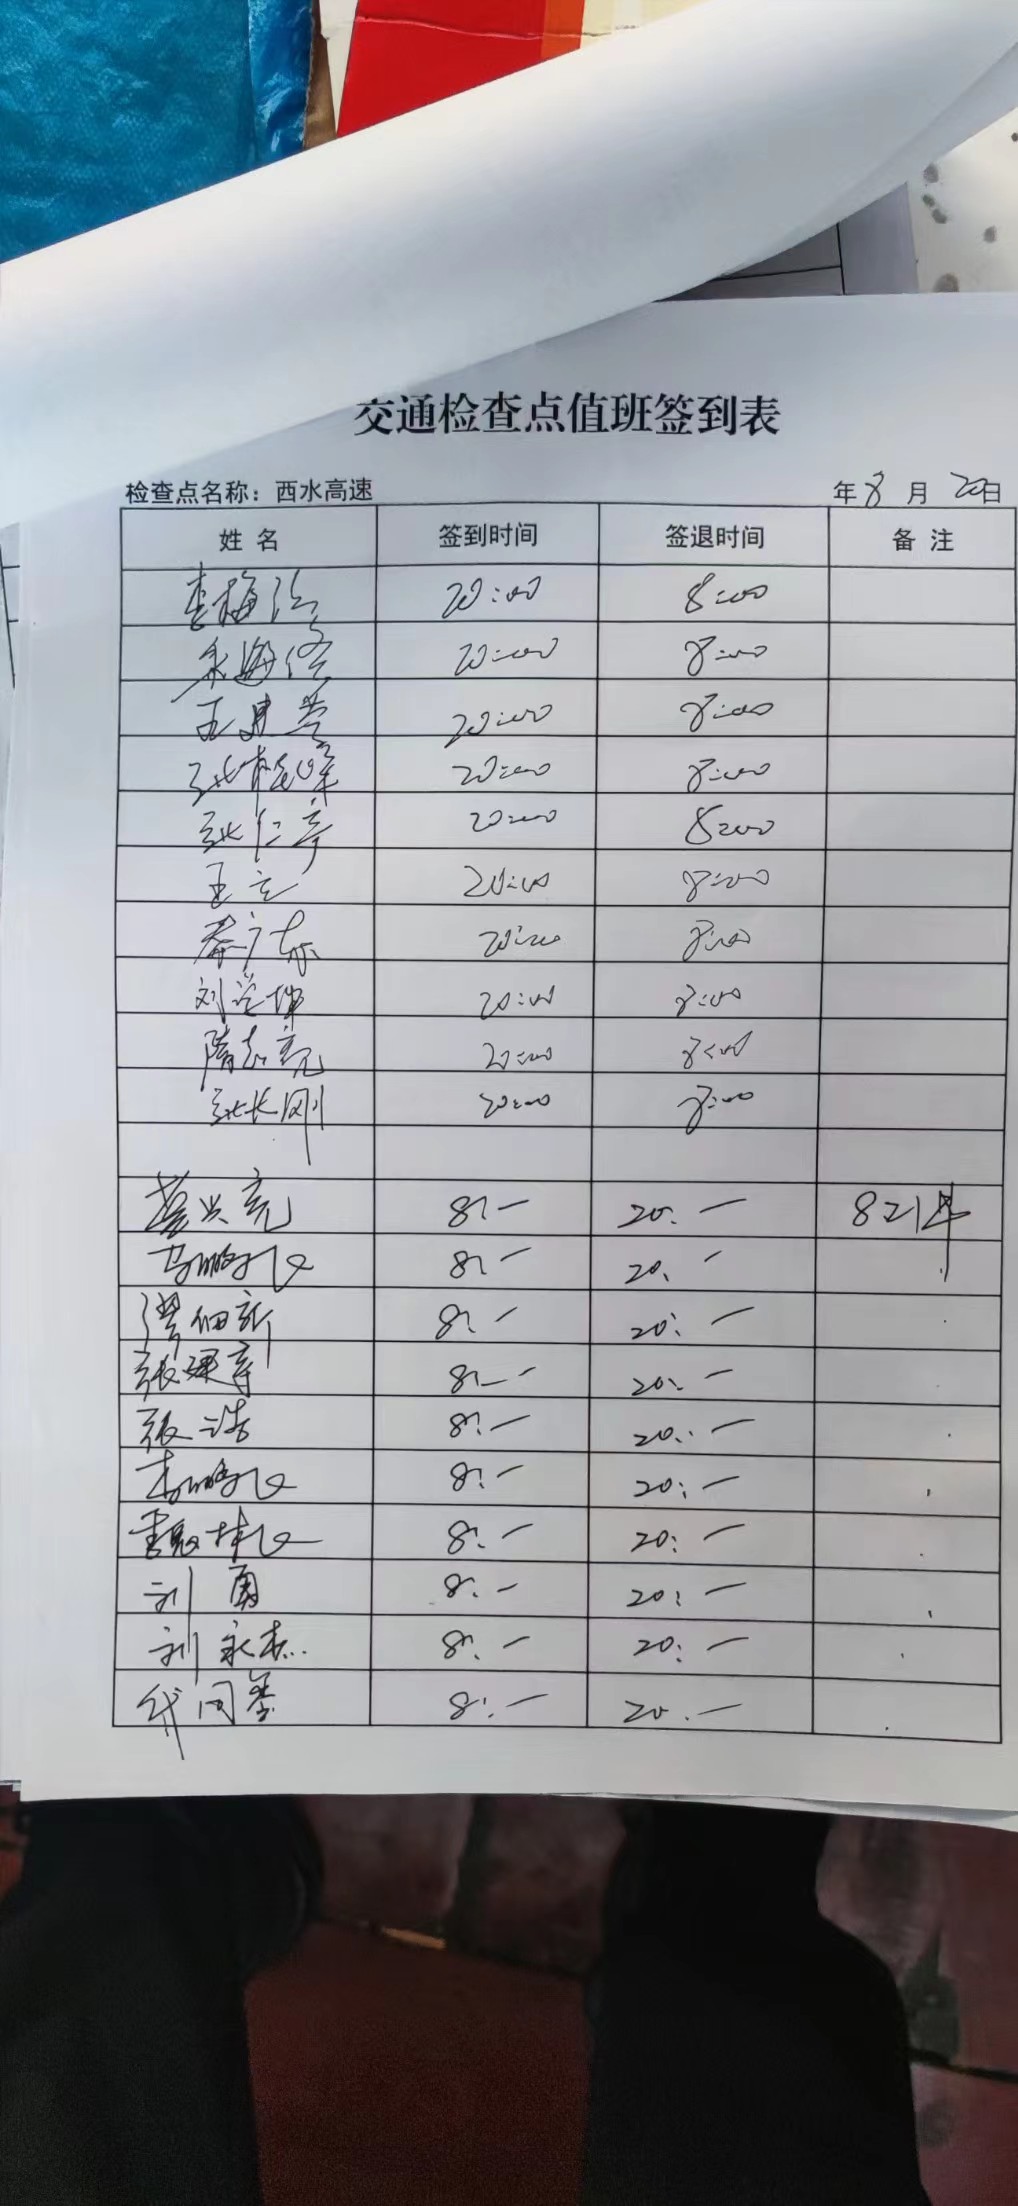 交通检查点值班签到表
检查点名称：西水高速 年8月20日
姓名 签到时间 签退时间 备注
李梅 20:00 8:00
海 20:00 8:00
王建 20:00 8:00
张 20:00 8:00
张仁 20:00 8:00
王 20:00 8:00
秦广 20:00 8:00
刘 20:00 8:00
隋志亮 20:00 8:00
张长刚 20:00 8:00
兴亮 8:— 20:— 821
马鹏飞 8:— 20:—
谭 新 8:— 20:—
张 8:— 20:—
张浩 8:— 20:—
李鹏飞 8:— 20:—
李 飞 8:— 20:—
刘勇 8:— 20:—
刘永杰 8:— 20:—
代同 8:— 20:—